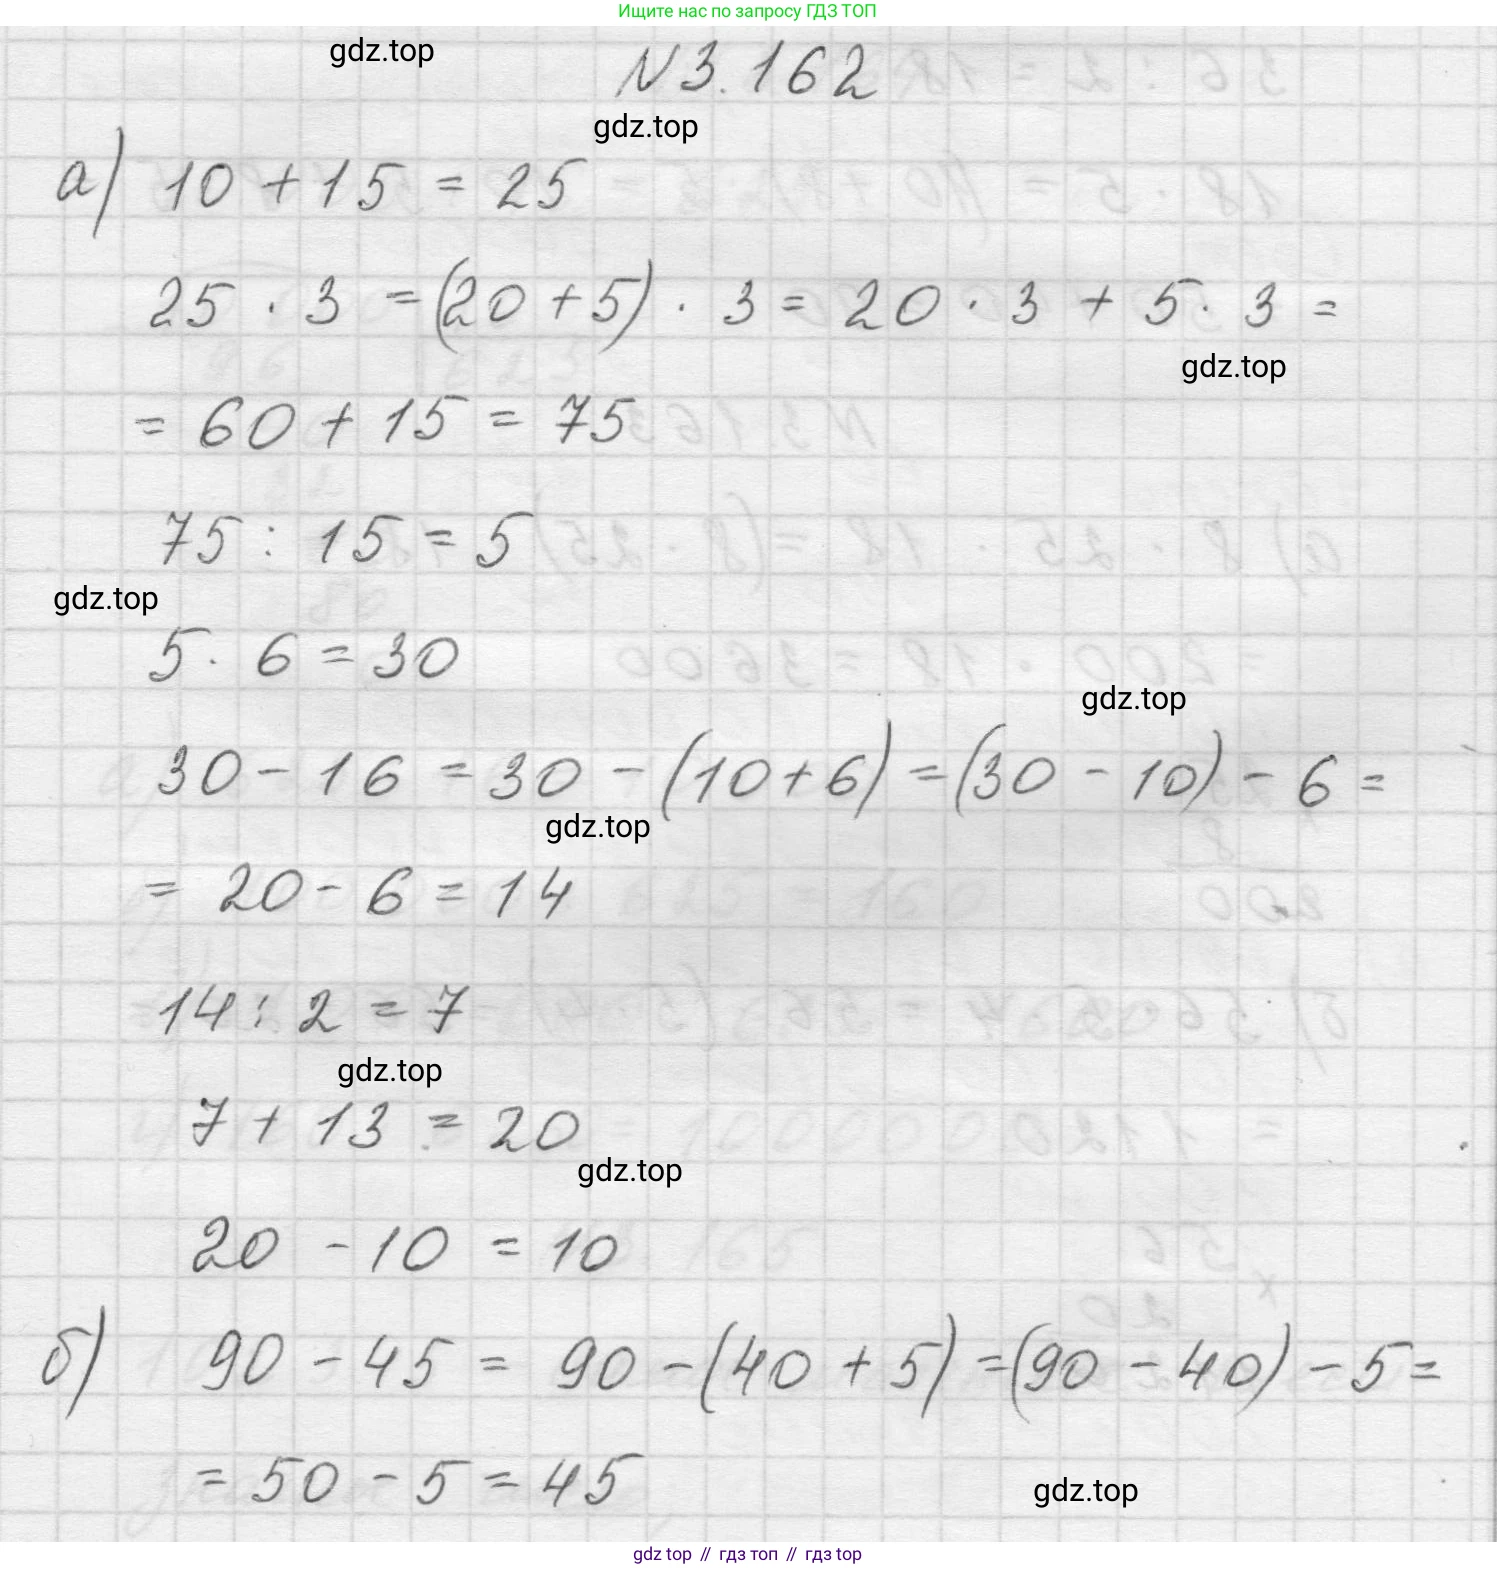 Ищите нас по запросу ГДЗ ТОП
gdz.top
N 3.162
gdz.top
а) 10 + 15 = 25
25 · 3 = (20 + 5) · 3 = 20 · 3 + 5 · 3 =
gdz.top
= 60 + 15 = 75
75 : 15 = 5
gdz.top
5 · 6 = 30
gdz.top
30 - 16 = 30 - (10 + 6) = (30 - 10) - 6 =
gdz.top
= 20 - 6 = 14
14 : 2 = 7
gdz.top
7 + 13 = 20
gdz.top
20 - 10 = 10
б) 90 - 45 = 90 - (40 + 5) = (90 - 40) - 5 =
= 50 - 5 = 45
gdz.top
gdz top // гдз топ // гдз top